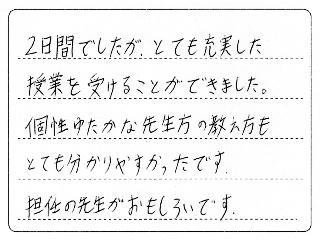 2日間でしたが、とても充実した
授業を受けることができました。
個性ゆたかな先生方の教え方も
とても分かりやすかったです.
担任の先生がおもしろいです.